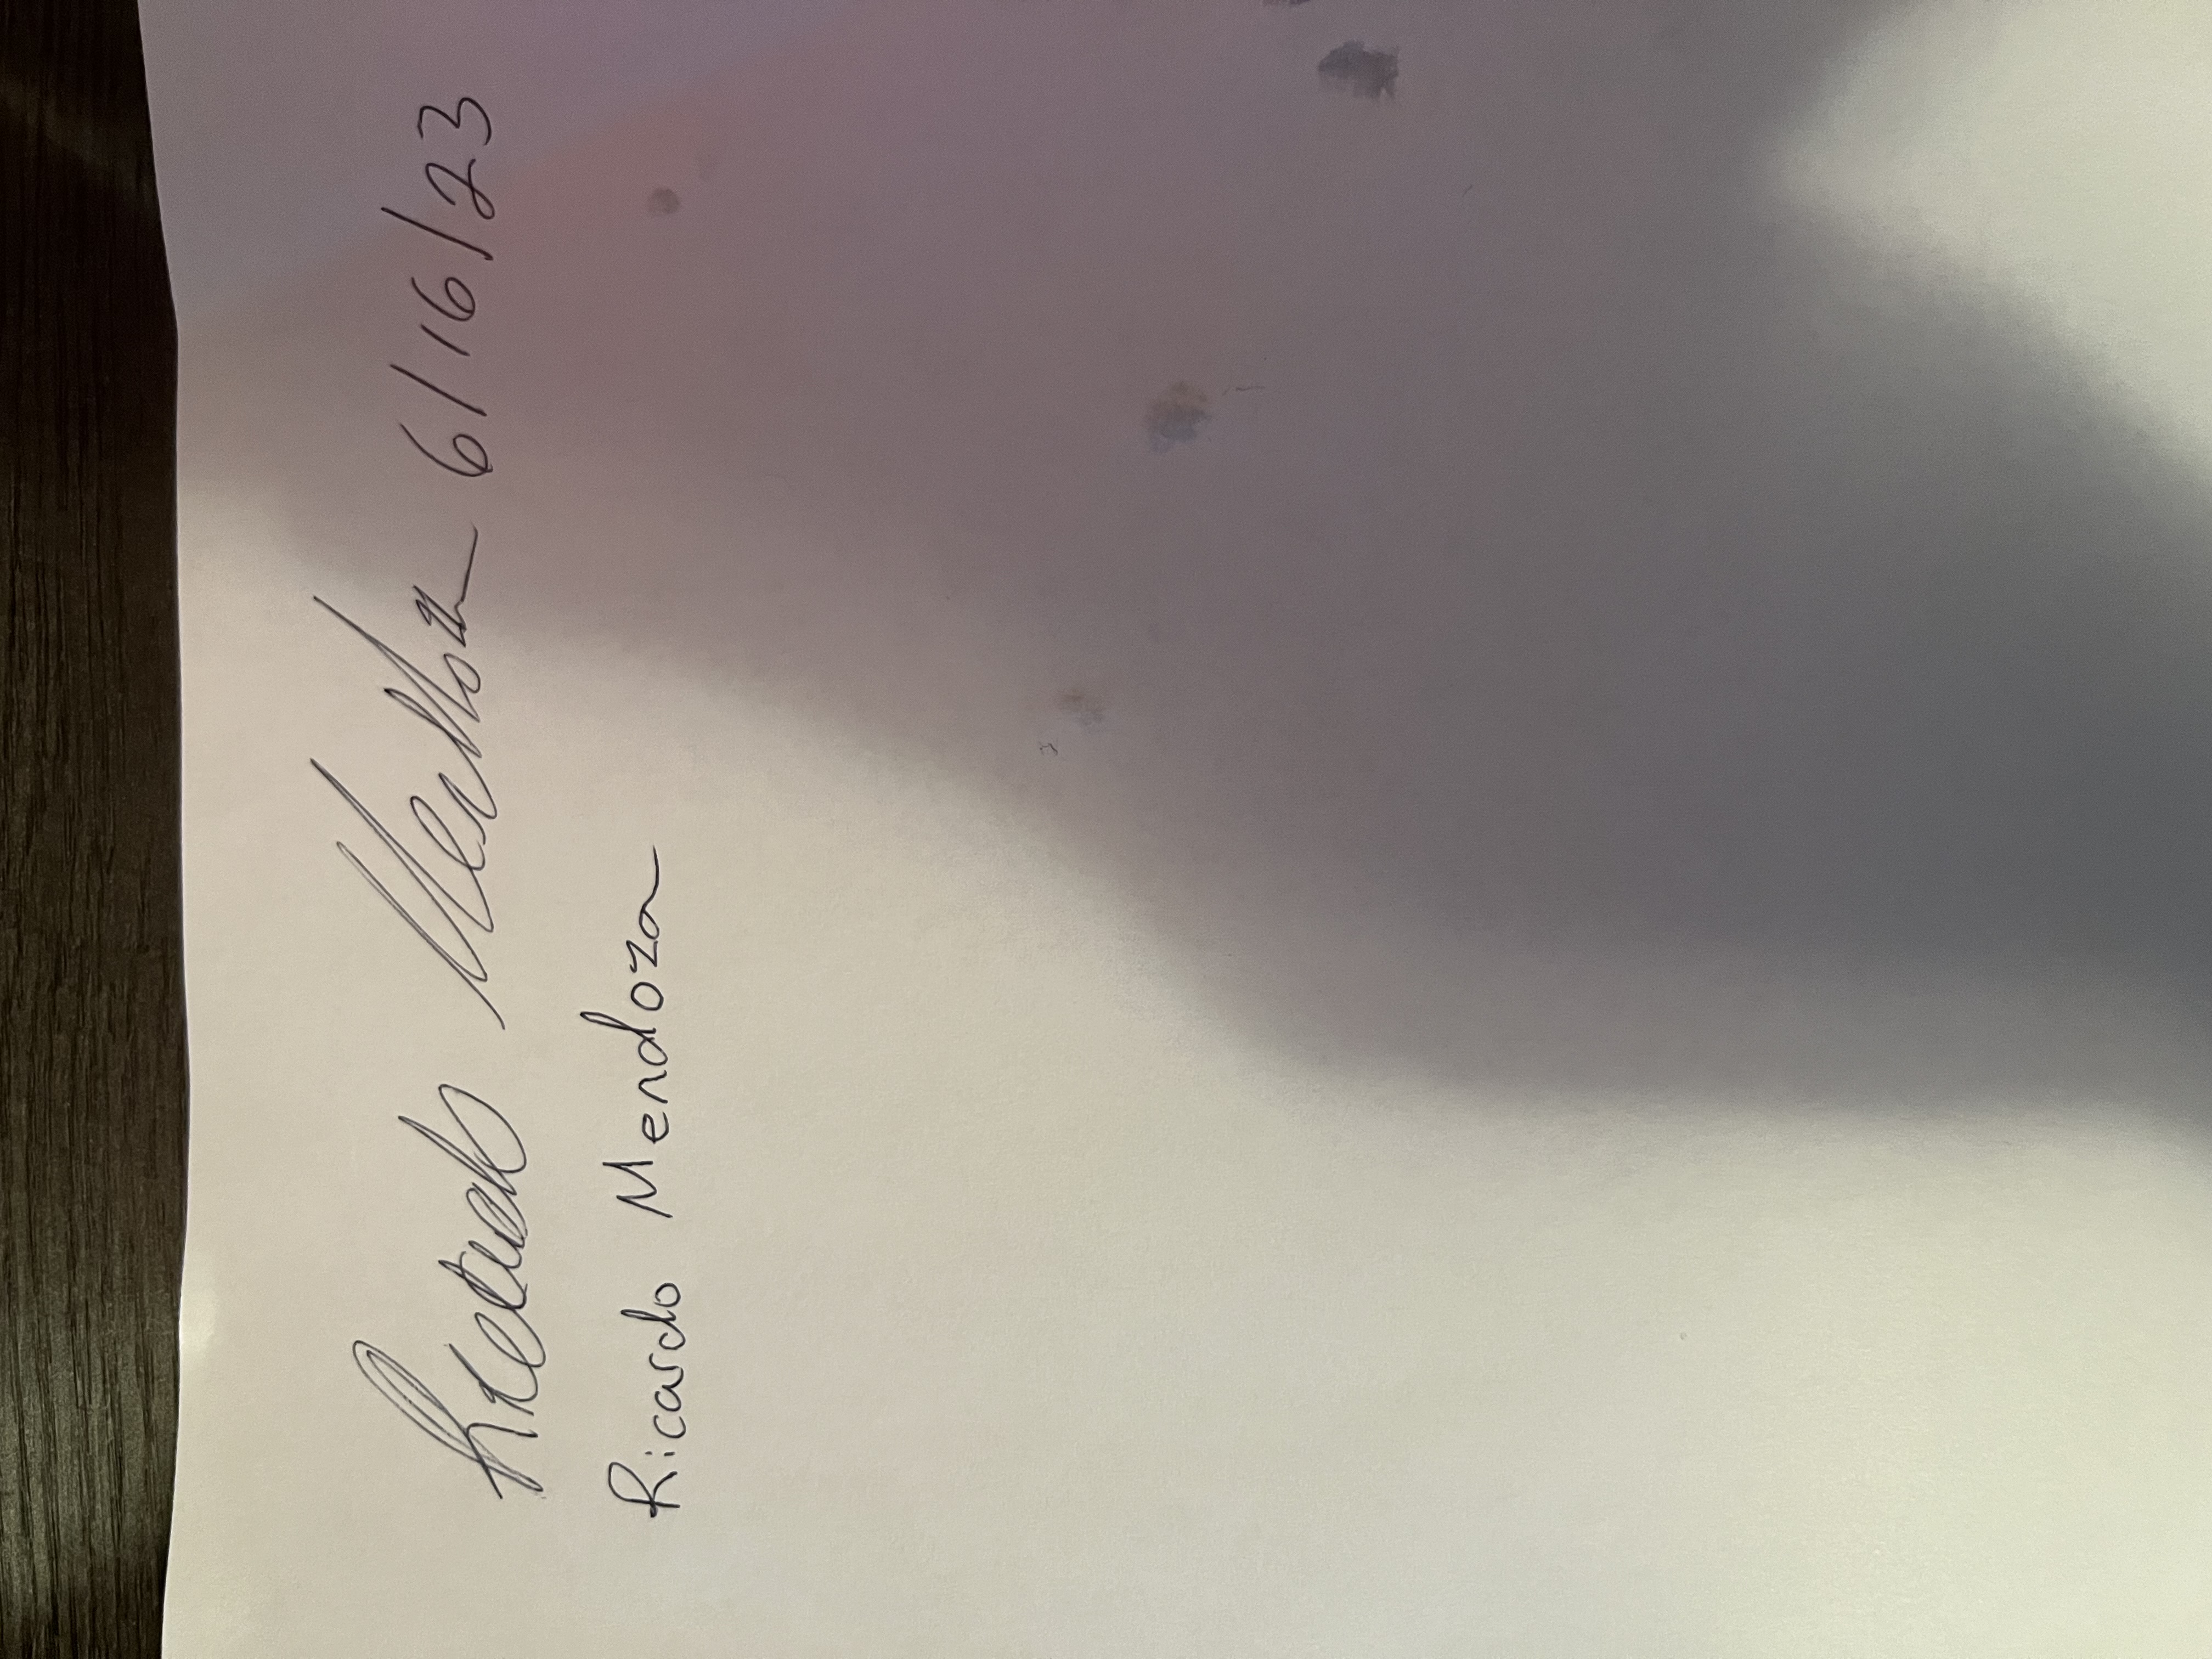 Ricardo Mendoza 6/16/23
Ricardo Mendoza